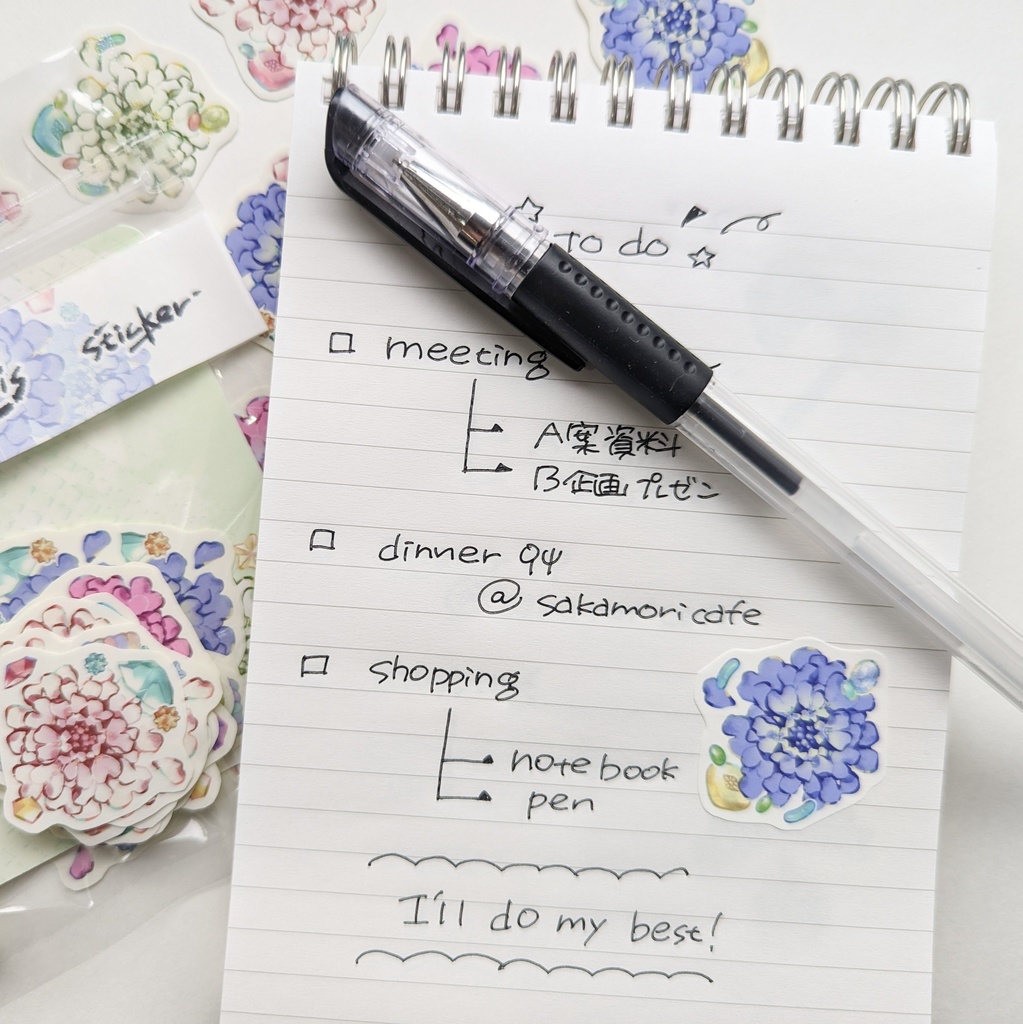 To do
sticker
is
□ meeting
A案資料
B企画プレゼン
□ dinner Q4
@ sakamori cafe
□ shopping
notebook
pen
I'll do my best!